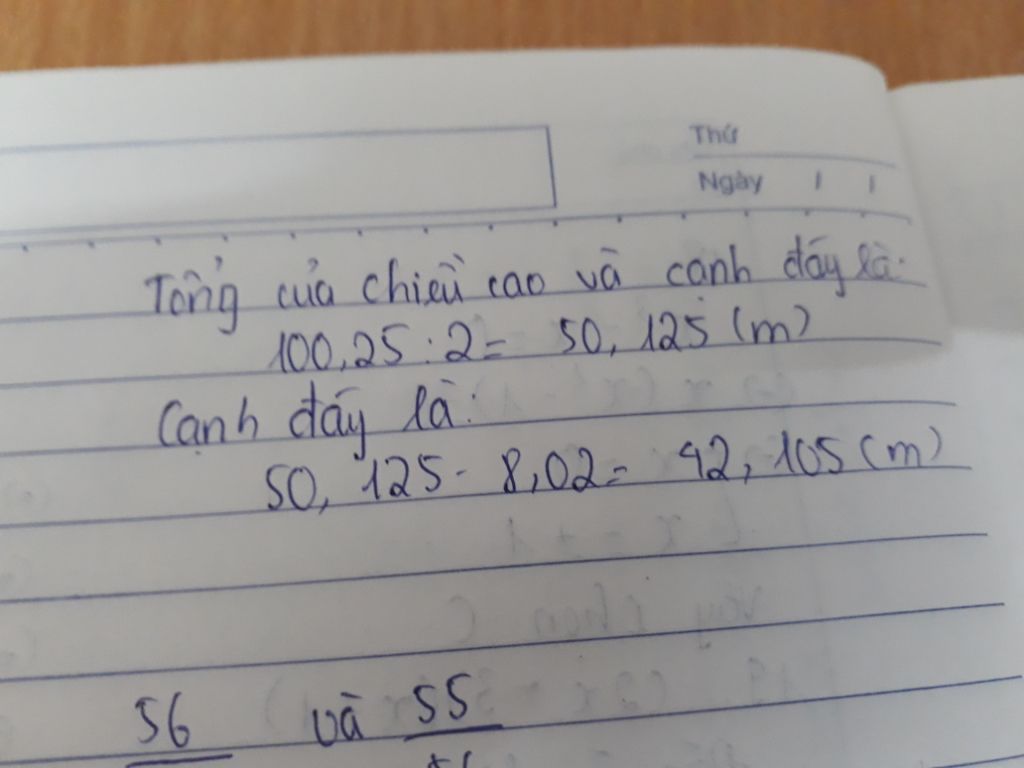 Thứ
Ngày / /
Tổng của chiều cao và cạnh đáy là:
100,25 : 2 = 50, 125 (m)
Cạnh đáy là:
50, 125 - 8,02 = 42, 105 (m)
56 và 55